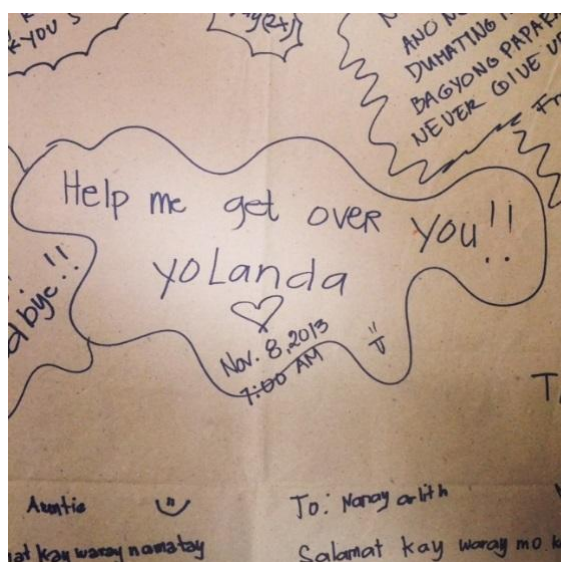 K YOU S
ANO N
DUMATING
BAGYONG PAPARA
NEVER GIVE UP
Fr
Help me get over you!!
yolanda
Nov. 8, 2013
7:00 AM
d bye!!
T
Auntie
To: Nanay arlith
at kay waray namatay
Salamat kay waray mo k